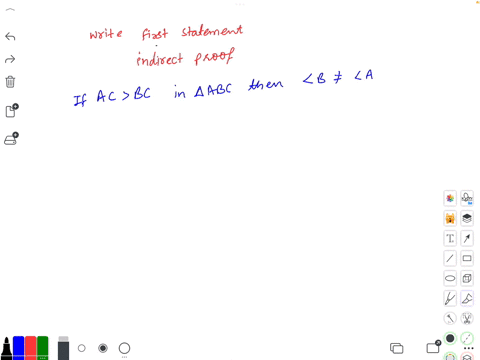 write first statement
indirect proof
If AC > BC in △ABC then ∠B ≠ ∠A